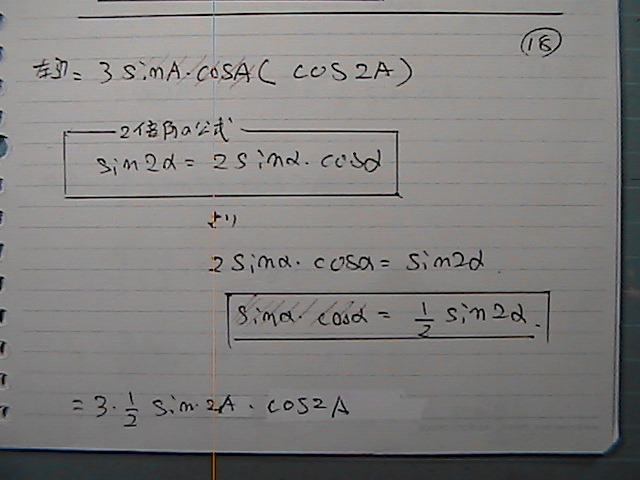 18
左辺 = 3 sinA・cosA ( cos2A )
2倍角の公式
sin2α = 2 sinα・cosα
より
2 sinα・cosα = sin2α
sinα・cosα = 1/2 sin2α.
= 3・1/2 sin 2A・cos2A